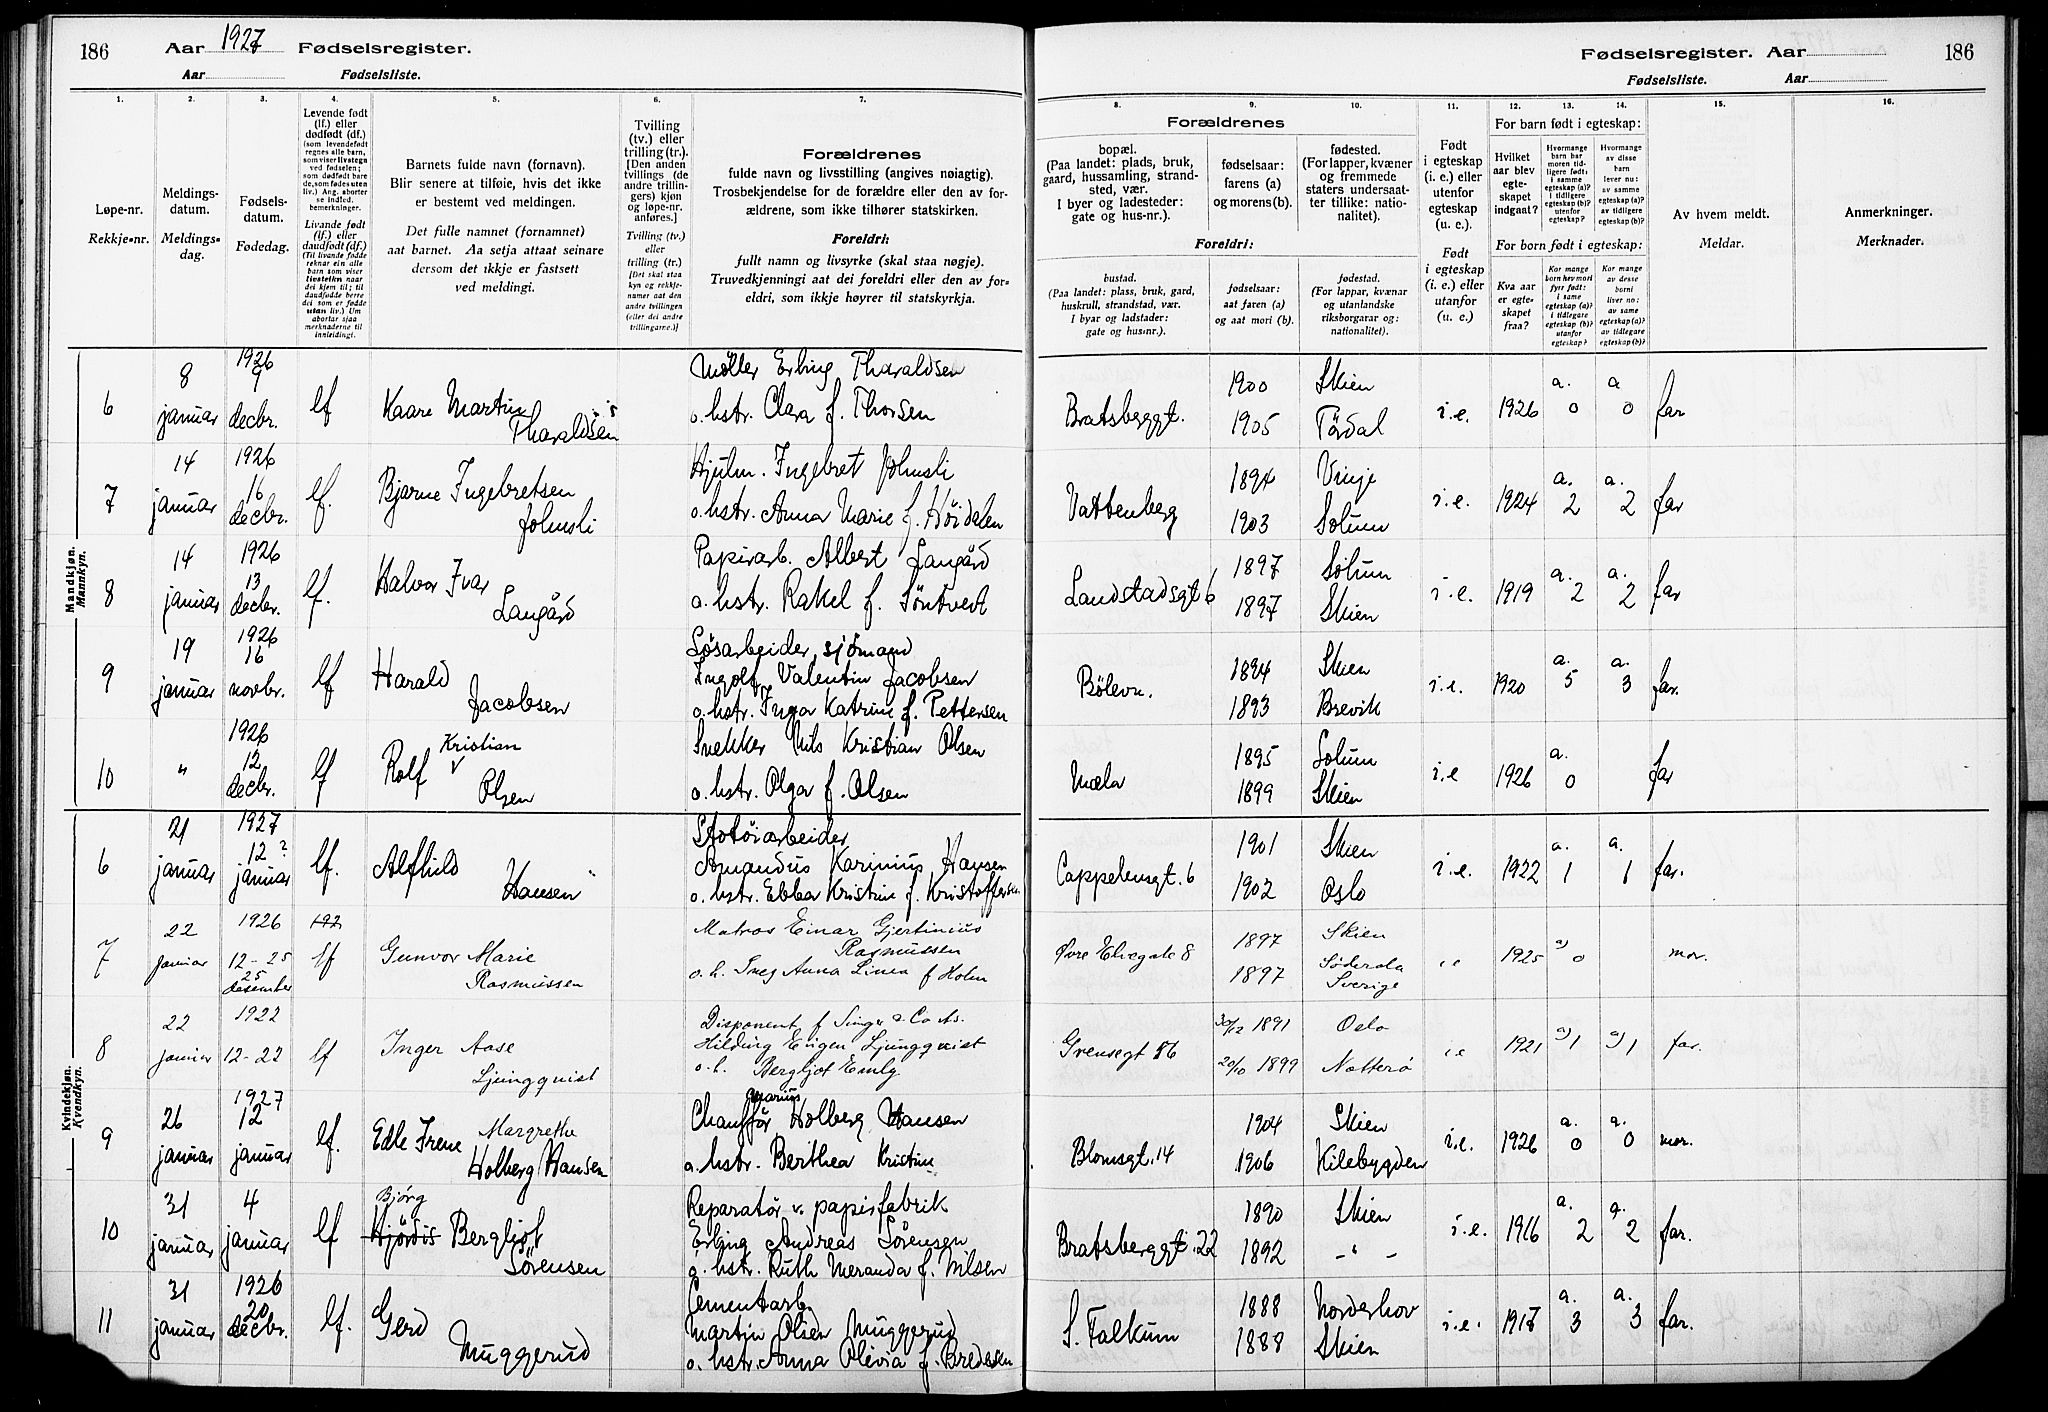 186 Aar 1927 Fødselsregister.
Aar Fødselsliste.
Fødselsregister. Aar 186
Fødselsliste. Aar
1. 2. 3. 4. 5. 6. 7.
Løpe-nr.
Rekkje-nr.
Meldings-
datum.
Meldings-
dag.
Fødsels-
datum.
Fødedag.
Levende født
(lf.) eller
dødfødt (df.)
(som levendefødt
regnes alle barn,
som viser livstegn
ved fødselen;
som dødfødt bare
de, som fødes uten
liv.) Ang. aborter
se indled.
bemerkninger.
Livande født
(lf.) eller
daudfødt (df.)
(Til livande fødde
reknar ein alle
barn som viser
livsteikn naar
dei kjem til; til
daudfødde berre
dei som er fødde
utan liv.) Um
abortar sjaa
merknaderne til
innleidingi.
Barnets fulde navn (fornavn).
Blir senere at tilføie, hvis det ikke
er bestemt ved meldingen.
Det fulle namnet (fornamnet)
aat barnet. Aa setja attaat seinare
dersom det ikkje er fastsett
ved meldingi.
Tvilling
(tv.) eller
trilling (tr.).
[Den anden
tvillings (de
andre trillin-
gers) kjøn
og løpe-nr.
anføres.]
Tvilling (tv.)
eller
trilling (tr.)
[Det skal staa
kyn og rekkje-
numer aat den
andre tvillingen
(eller dei andre
trillingarne.)]
Forældrenes
fulde navn og livsstilling (angives nøiagtig).
Trosbekjendelse for de forældre eller den av for-
ældrene, som ikke tilhører statskirken.
Foreldri:
fullt namn og livsyrke (skal staa nøgje).
Truvedkjenningi aat dei foreldri eller den av for-
eldri, som ikkje høyrer til statskyrkja.
8. 9. 10. 11. 12. 13. 14. 15. 16.
Forældrenes
bopæl.
(Paa landet: plads, bruk,
gaard, hussamling, strand-
sted, vær.
I byer og ladesteder:
gate og hus-nr.).
fødselsaar:
farens (a)
og morens (b).
fødested.
(For lapper, kvæner
og fremmede
staters undersaat-
ter tillike: natio-
nalitet).
Foreldri:
bustad.
(Paa landet: plass, bruk, gard,
huskrull, strandstad, vær.
I byar og ladstader:
gate og husnr.).
fødselsaar:
aat faren (a)
og aat mori (b).
fødestad.
(For lappar, kvænar
og utanlandske
riksborgarar og:
nationalitet).
Født
i egteskap
(i. e.) eller
utenfor
egteskap
(u. e.).
Født
i egteskap
(i. e.) eller
utanfor
(u. e.)
For barn født i egteskap:
Hvilket
aar blev
egte-
skapet
indgaat?
Hvormange
barn har
moren tid-
ligere født:
i samme
egteskap (a)?
i tidligere
egteskap (b)?
utenfor
egteskap?
Hvormange
av disse
barn
lever nu:
av samme
egteskap (a)?
av tidligere
egteskap (b)?
For born født i egteskap:
Kva aar
er egte-
skapet
fraa?
Kor mange
born hev mori
fyrr født:
i same
egteskap (a)?
i tidlegare
egteskap (b)?
utanfor
egteskap?
Kor mange
av desse
borni
liver no:
av same
egteskap (a)?
av tidlegare
egteskap (b)?
Av hvem meldt.
Meldar.
Anmerkninger.
Merknader.
Mandkjøn.
Mannkyn.
6 8 januar 1926 9 decbr. lf Kaare Martin Tharaldsen
Møller Erling Tharaldsen
o. hstr. Clara f. Thorsen
Bratsberggt. 1900 1905 Skien Tördal i.e. 1926 a. 0 a 0 far
7 14 januar 1926 16 decbr. lf. Bjarne Ingebretsen Johnsli
Hjulm. Ingebret Johnsli
o. hstr. Anna Marie f. Höidalen
Vattenberg 1894 1903 Vinje Solum i.e. 1924 a. 2 a. 2 far
8 14 januar 1926 13 decbr. lf. Halvor Ivar Langård
Papirarb. Albert Langård
o. hstr. Rakel f. Töntvedt
Landstadsgt 6 1897 1897 Solum Skien i.e. 1919 a. 2 a. 2 far
9 19 januar 1926 16 novbr. lf Harald Jacobsen
Løsarbeider, sjömand
Ingolf Valentin Jacobsen
o. hstr. Inga Katrine f. Pettersen
Bölevn. 1894 1893 Skien Brevik i.e. 1920 a. 5 a. 3 far.
10 " 1926 12 decbr. lf Rolf Kristian Olsen
Snekker Nils Kristian Olsen
o. hstr. Olga f. Olsen
Mæla 1895 1899 Solum Skien i.e 1926 a. 0 far
Kvindekjøn.
Kvendkyn.
6 21 januar 1927 12 ? januar lf. Alfhild Hansen
Amandus Karinius Hansen
o. hstr. Ebba Kristine f. Kristoffersen
Cappelensgt. 6 1901 1902 Skien Oslo i.e. 1922 a. 1 a. 1 far.
7 22 januar 1926 12-25 25 desember 192 lf Gunvor Marie Rasmussen
Matros Einar Gjertinius
Rasmussen
o. h. Inez Anna Linea f Holm
Øvre Elvegate 8 1897 1897 Skien Söderala Sverige i e 1925 a) 0 mor.
8 22 januar 1922 12-22 lf Inger Aase Ljungqvist
Disponent f Singer & Co As.
Hilding Eugen Ljungqvist
o. h. Bergljot Emly
Grensegt 86 30/12 1891 20/10 1899 Oslo Nøtterø i e 1921 a) 1 a) 1 far.
9 26 januar 1927 12 januar lf. Edle Irene Margrethe Holberg Hansen
Chauffør Holberg Hansen
o. hstr. Berthea Kristine
Blomsgt. 14 1904 1906 Skien Kilebygden i.e. 1926 a. 0 a. 0 mor.
10 31 januar 4 januar lf Bjørg Hjördis Bergljot Sörensen
Reparatør v. papirfabrik
Erling Andreas Sörensen
o. hstr. Ruth Meranda f. Nilsen
Bratsberggt. 22 1890 1892 Skien -"- i.e. 1916 a. 2 a. 2 far.
11 31 januar 1926 20 decbr. lf. Gerd Muggerud
Cementarb.
Martin Olsen Muggerud
o. hstr. Anna Olevia f. Bredesen
S. Falkum 1888 1888 Norderhov Skien i.e. 1917 a. 3 a. 3 far.